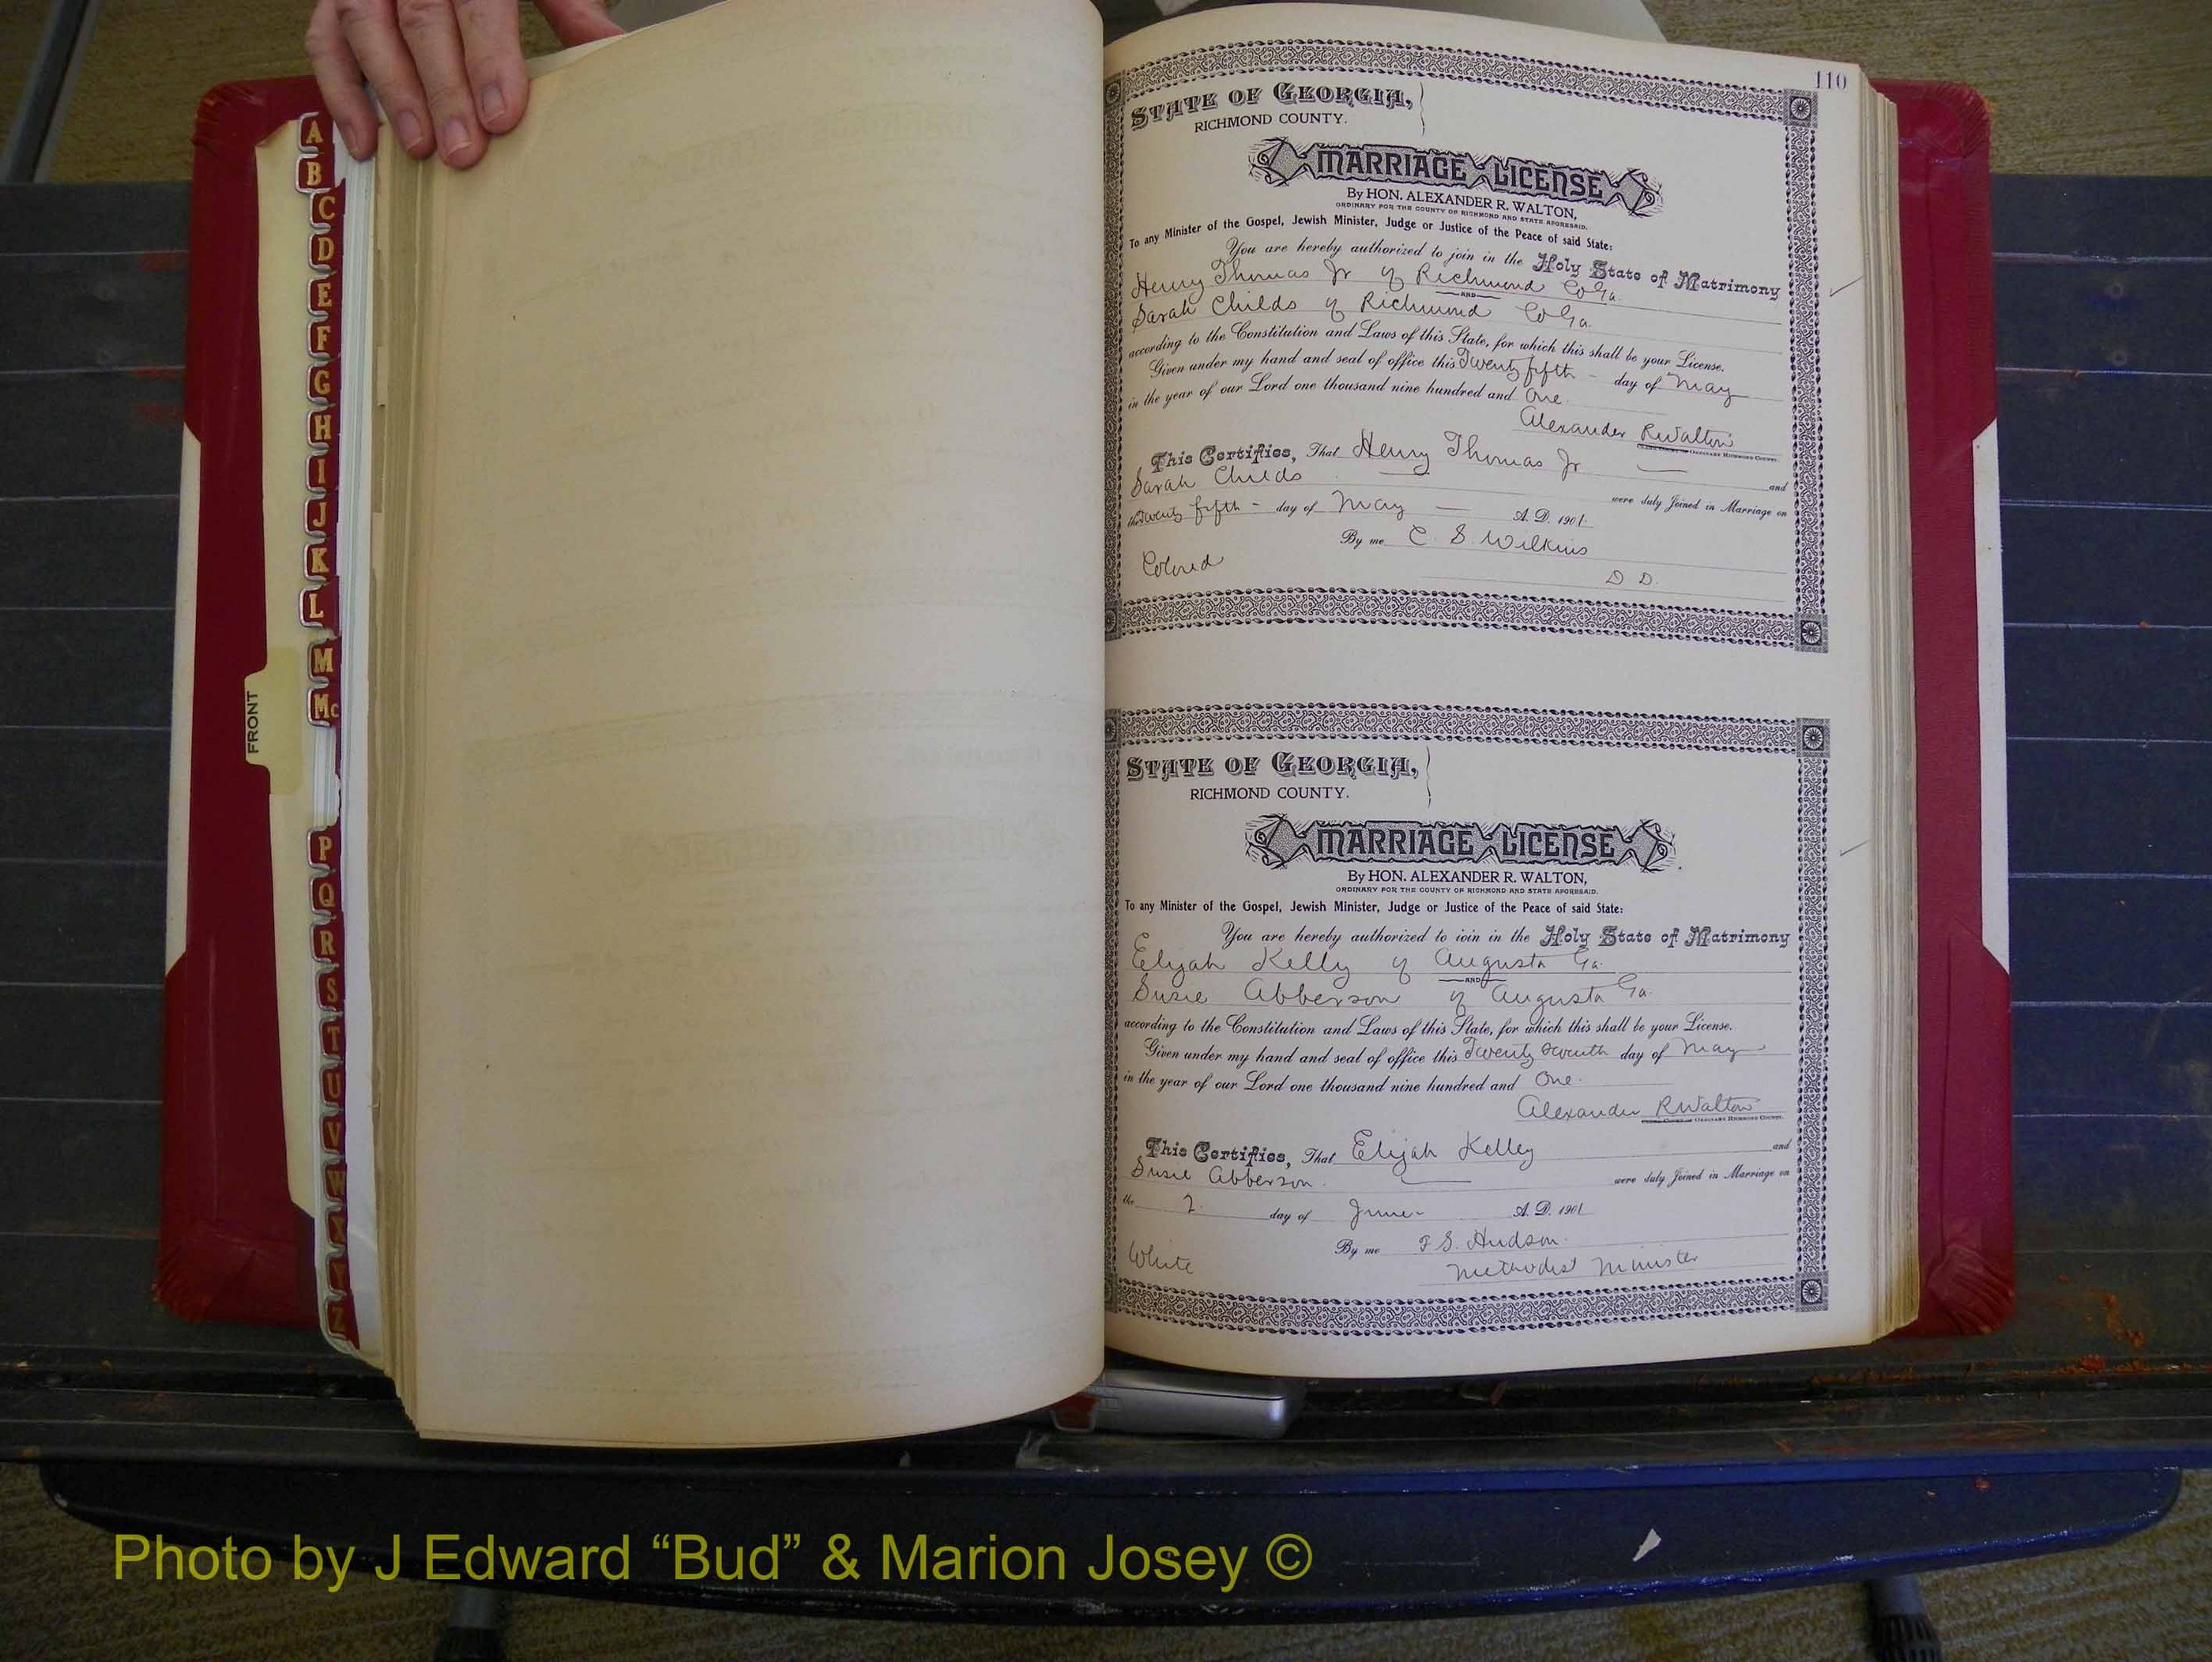 A
B
C
D
E
F
G
H
I
J
K
L
M
Mc
P
Q
R
S
T
U
V
W
X
Y
Z
FRONT
110
STATE OF GEORGIA,
RICHMOND COUNTY.
MARRIAGE LICENSE
By HON. ALEXANDER R. WALTON,
ORDINARY FOR THE COUNTY OF RICHMOND AND STATE AFORESAID.
To any Minister of the Gospel, Jewish Minister, Judge or Justice of the Peace of said State:
You are hereby authorized to join in the Holy State of Matrimony
Henry Thomas Jr of Richmond Co Ga.
AND
Sarah Childs of Richmond Co Ga.
according to the Constitution and Laws of this State, for which this shall be your License.
Given under my hand and seal of office this Twenty fifth - day of May
in the year of our Lord one thousand nine hundred and One.
Alexander R Walton
ORDINARY RICHMOND COUNTY.
This Certifies, That Henry Thomas Jr — and
Sarah Childs — were duly Joined in Marriage on
the Twenty fifth - day of May — A. D. 1901.
By me C. S. Wilkins
Colored D D.
STATE OF GEORGIA,
RICHMOND COUNTY.
MARRIAGE LICENSE
By HON. ALEXANDER R. WALTON,
ORDINARY FOR THE COUNTY OF RICHMOND AND STATE AFORESAID.
To any Minister of the Gospel, Jewish Minister, Judge or Justice of the Peace of said State:
You are hereby authorized to join in the Holy State of Matrimony
Elijah Kelly of Augusta Ga.
AND
Susie Abberson of Augusta Ga.
according to the Constitution and Laws of this State, for which this shall be your License.
Given under my hand and seal of office this Twenty seventh day of May
in the year of our Lord one thousand nine hundred and One.
Alexander R Walton
ORDINARY RICHMOND COUNTY.
This Certifies, That Elijah Kelley and
Susie Abberson. — were duly Joined in Marriage on
the 2. day of June - A. D. 1901
By me F S. Hudson.
White Methodist Minister
Photo by J Edward “Bud” & Marion Josey ©